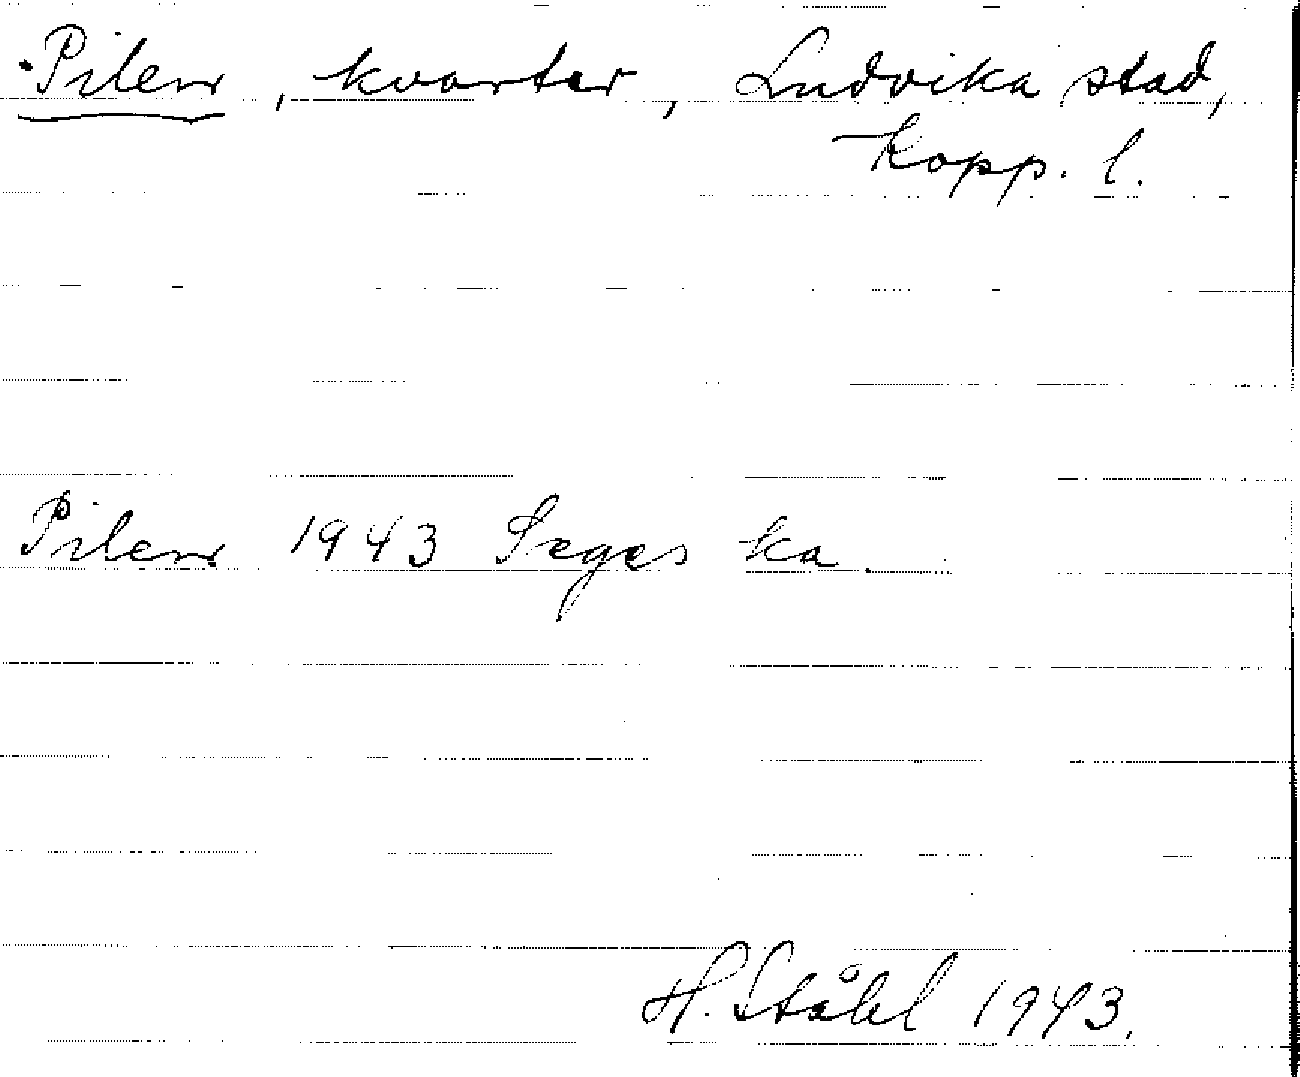 Pilen, kvarter, Ludvika stad,
Kopp. l.
Pilen 1943 Seges ka.
H. Ståhl 1943.